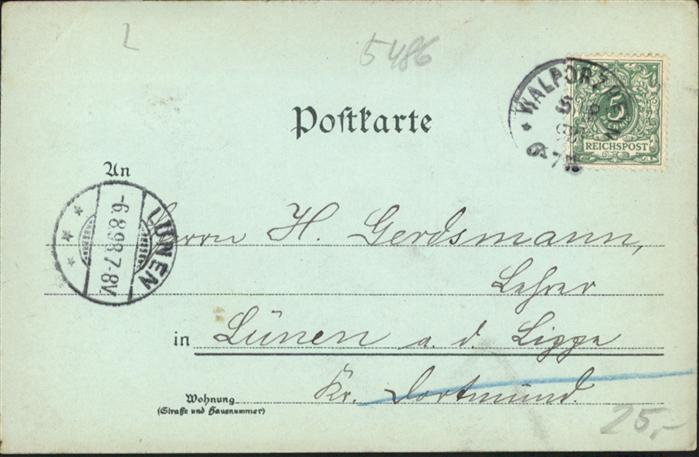 2
5486
WALPORZHEIM
5
REICHSPOST
Postkarte
An
LÜNEN
-6.8.98.7-8V.
* * *
Herrn H. Gerdsmann,
Lehrer
in Lünen a. d. Lippe
Kr. Dortmund.
Wohnung
(Straße und Hausnummer)
25,-